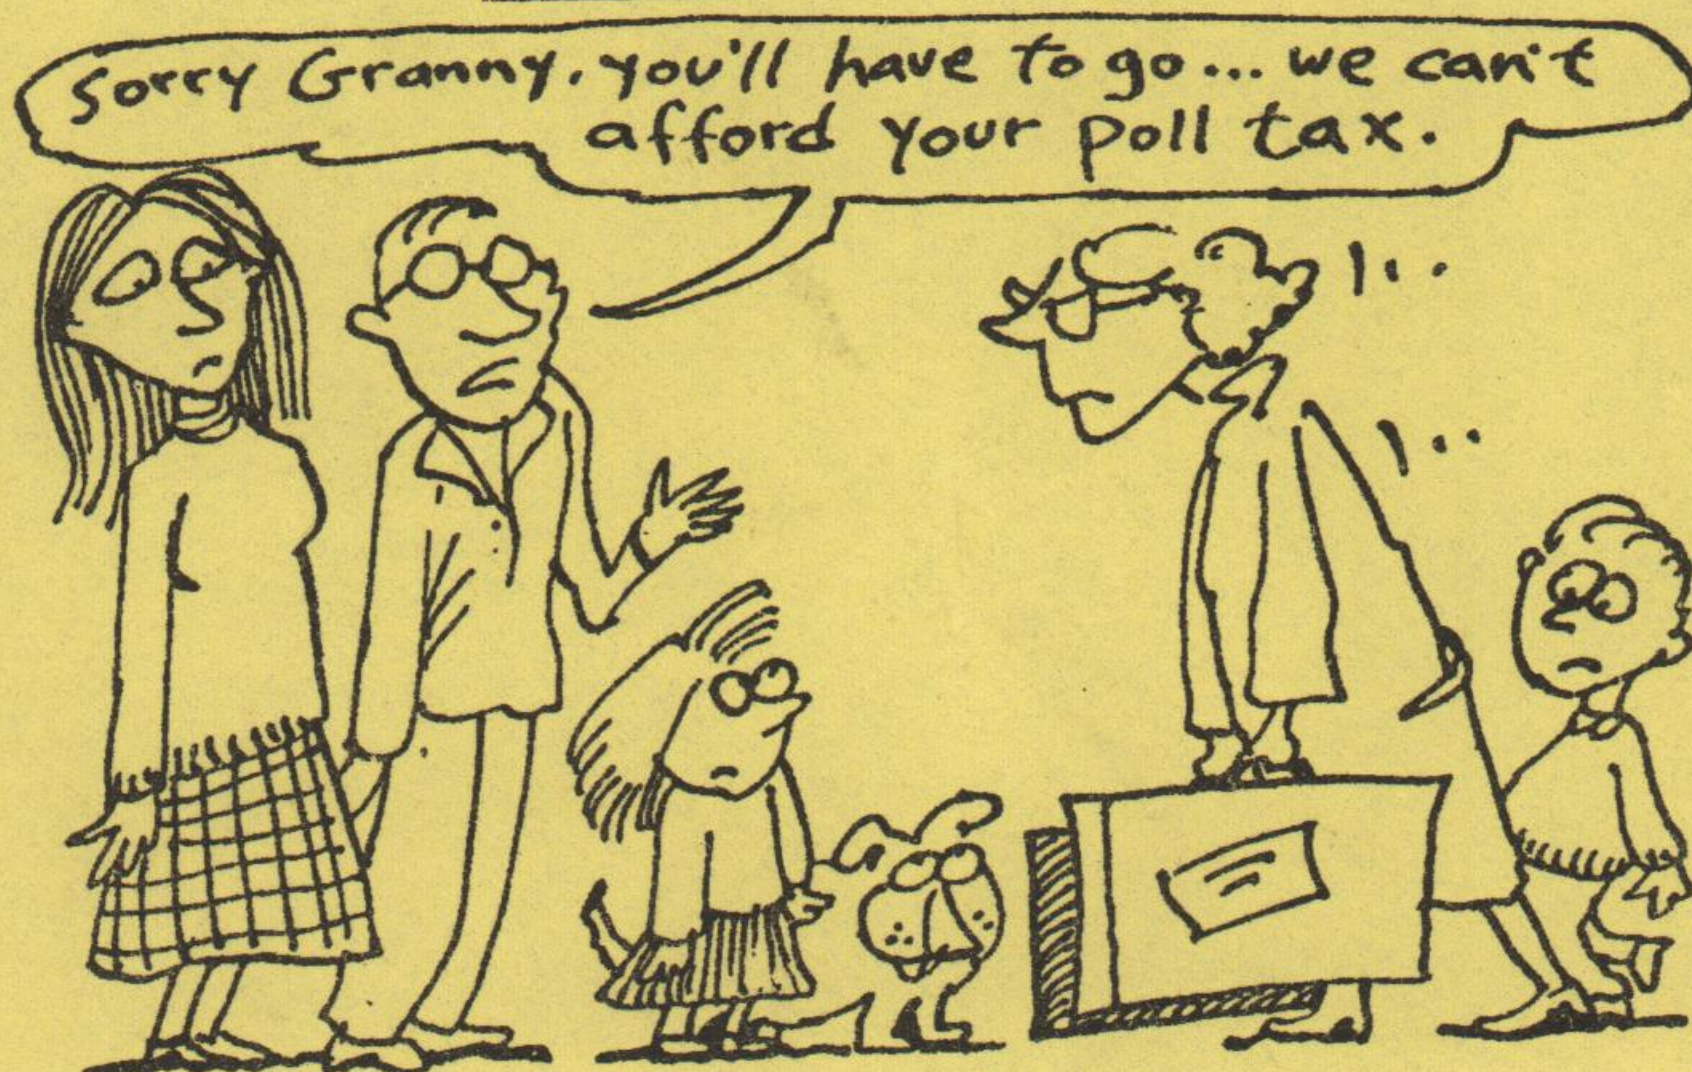 Sorry Granny. you'll have to go... we can't
afford your poll tax.